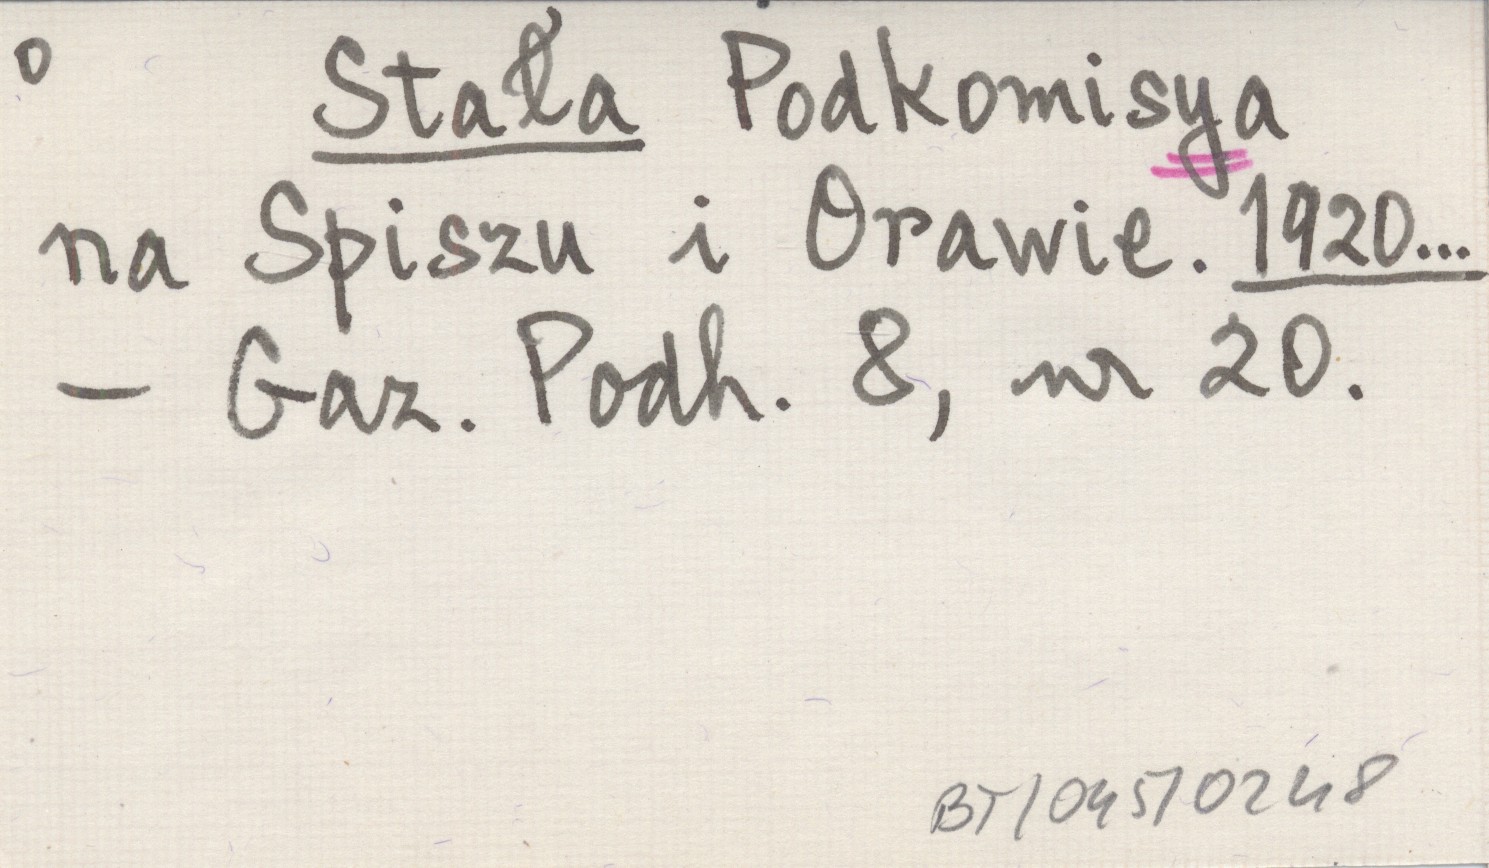 o Stała Podkomisya
na Spiszu i Orawie. 1920...
– Gaz. Podh. 8, nr 20.
BT/045/0248